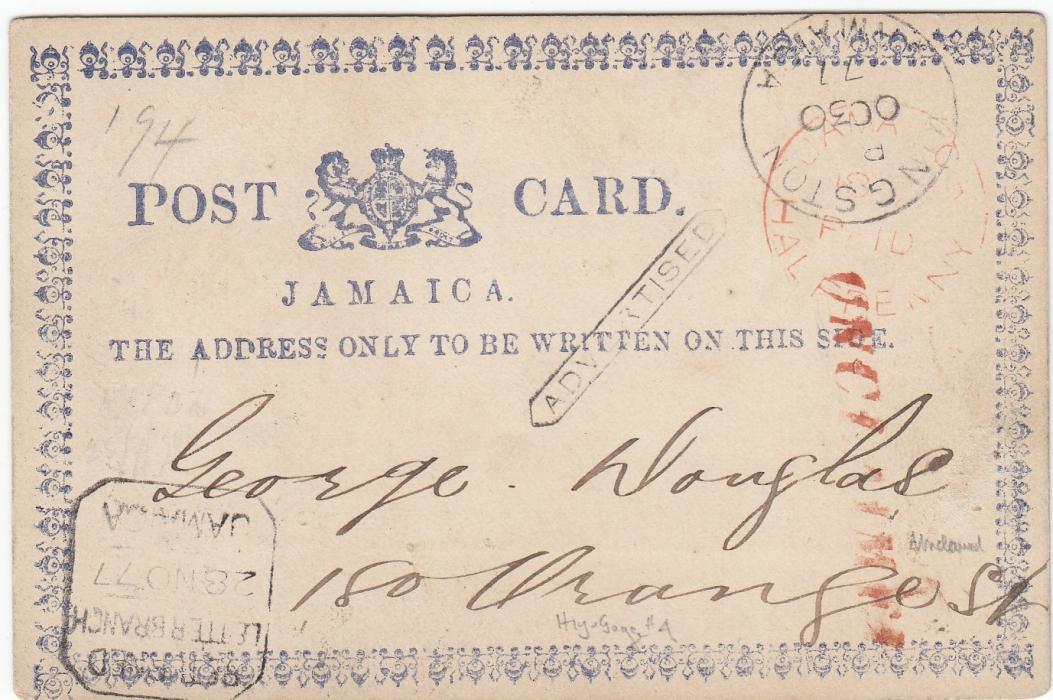 194
POST CARD.
JAMAICA.
THE ADDRESS ONLY TO BE WRITTEN ON THIS SIDE.
ADVERTISED
KINGSTON
P
OC30
77
JAMAICA
HALFPENNY
PAID
George. Douglas
180 Orange St
Unclaimed
LETTER BRANCH
28 NO 77
JAMAICA